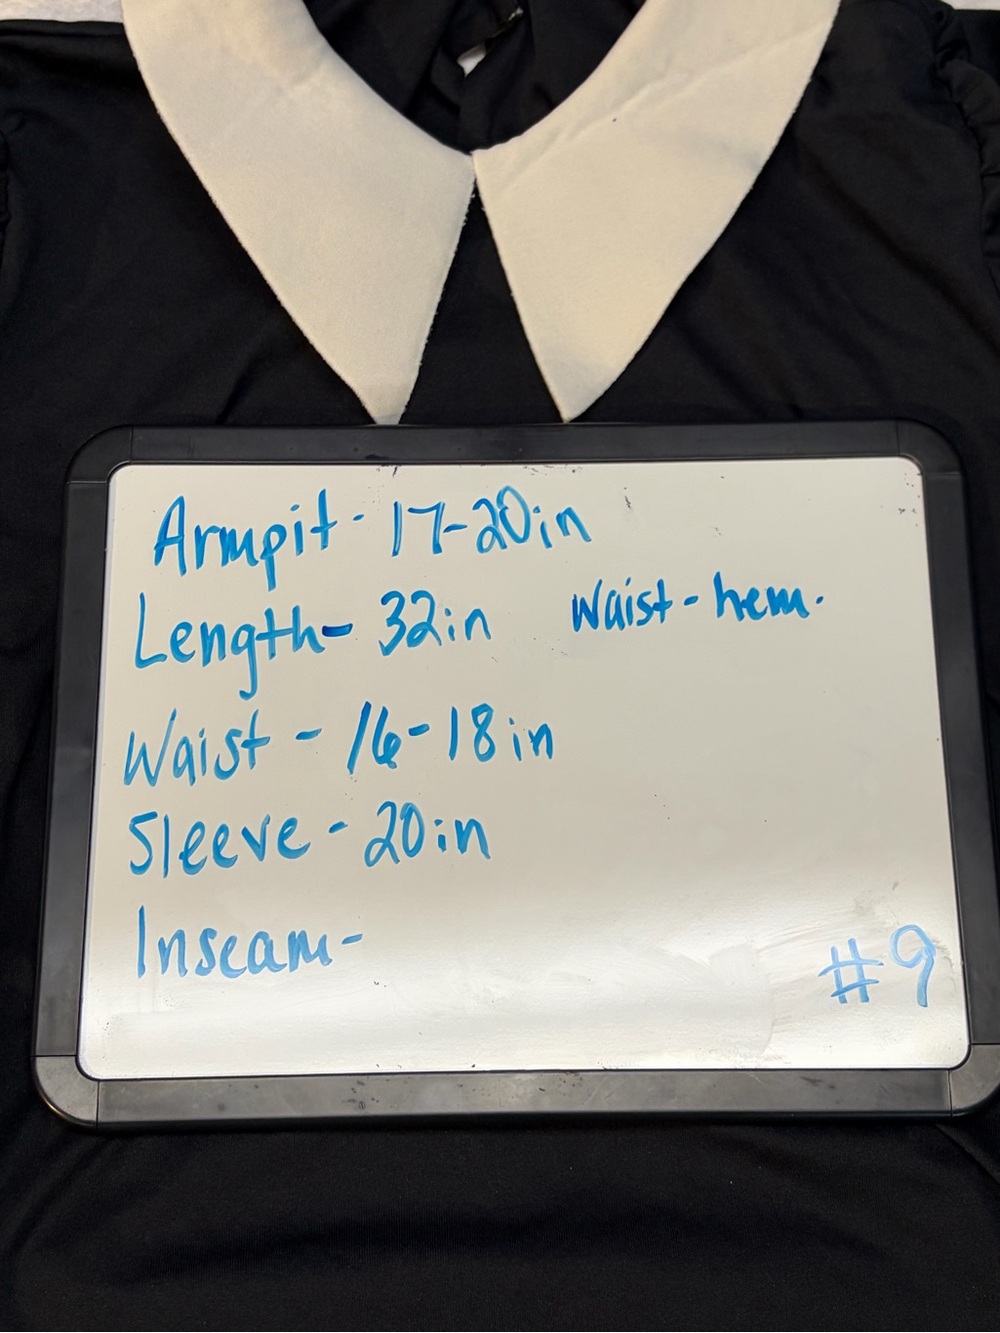 Armpit - 17-20in
Length - 32in Waist - hem.
Waist - 16-18in
Sleeve - 20in
Inseam -
#9